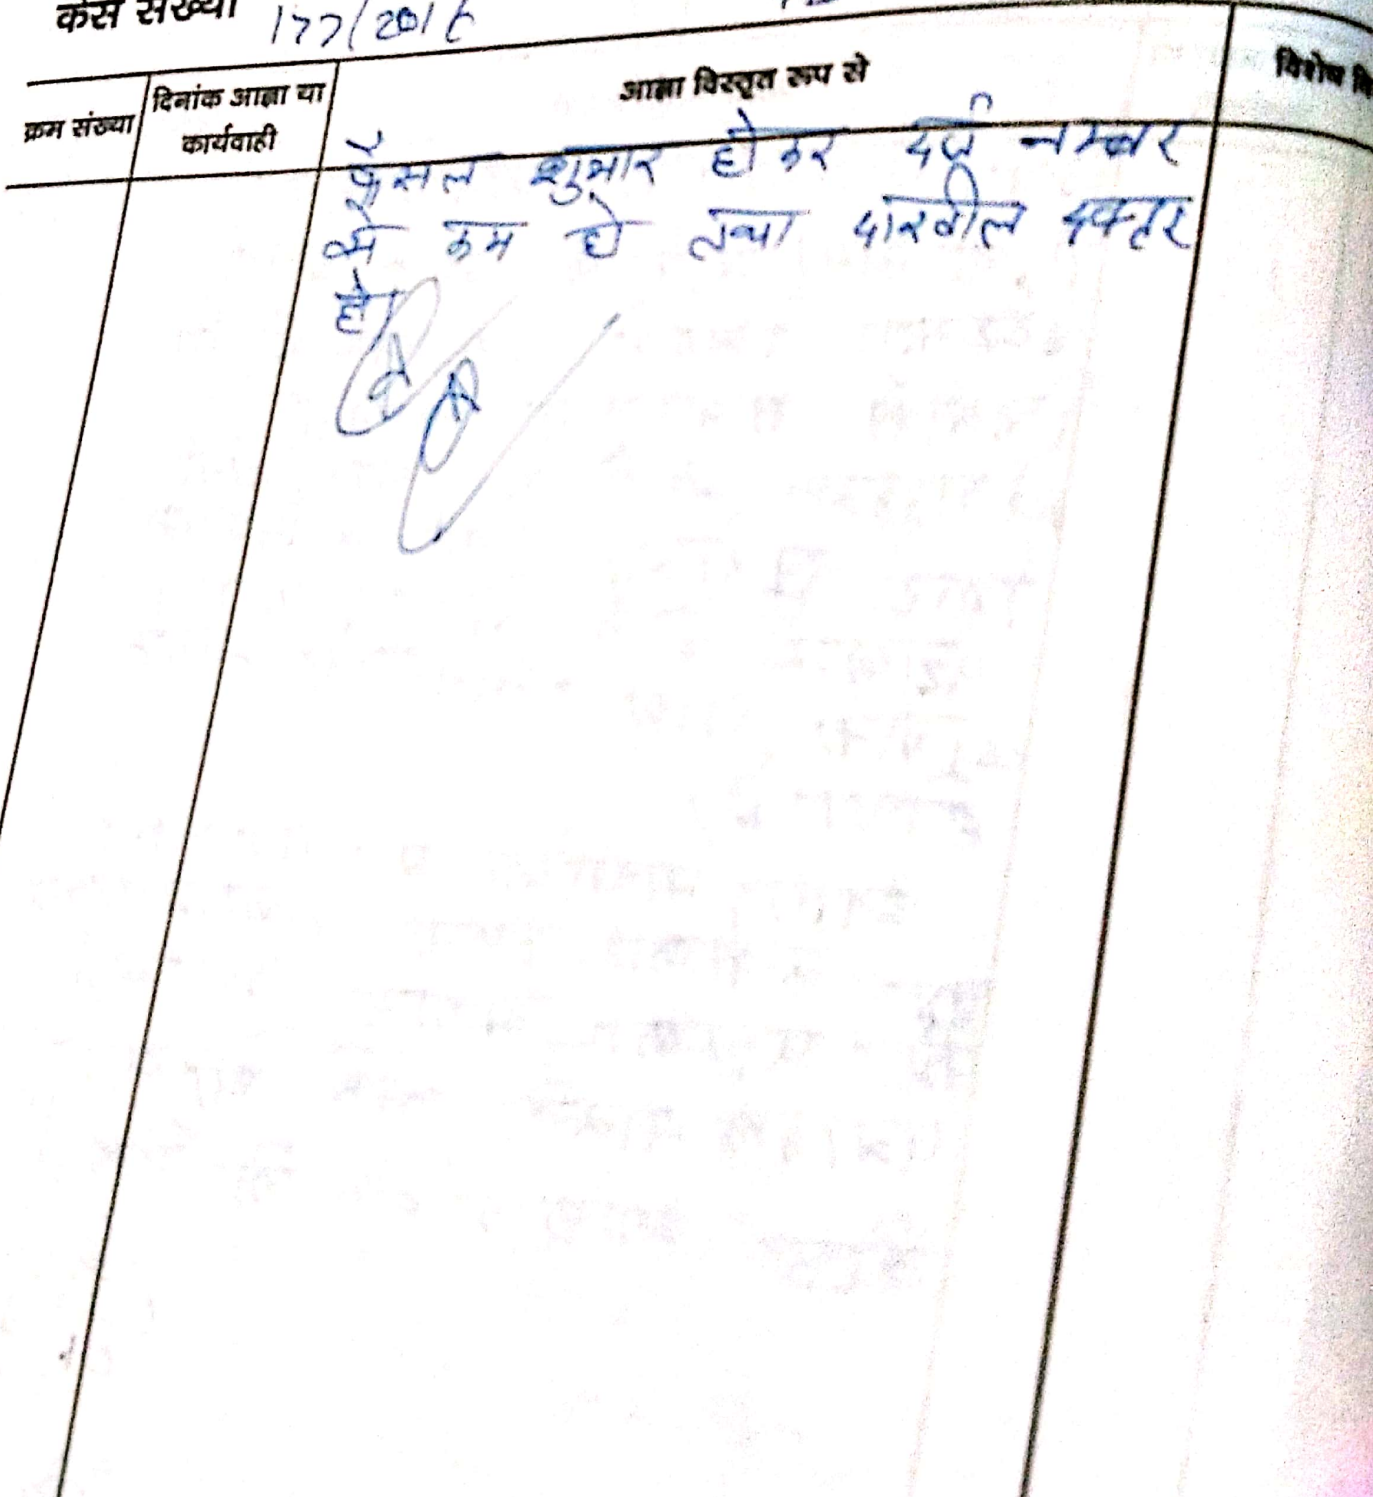 केस संख्या 177/2016
क्रम संख्या
दिनांक आज्ञा या
कार्यवाही
आज्ञा विस्तृत रूप से
विशेष वि
फैसल शुमार होकर दर्ज नम्बर
से कम हो तथा दाखील दफ्तर
हो।